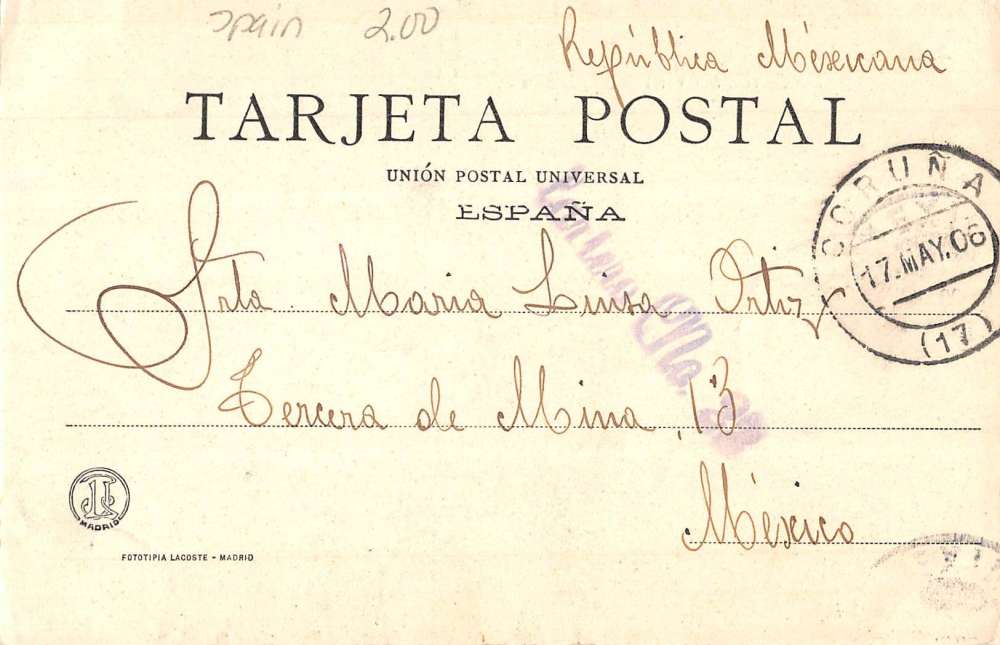 Spain 2.00
República Méxicana
TARJETA POSTAL
UNIÓN POSTAL UNIVERSAL
ESPAÑA
CORUÑA
17.MAY.06
(17)
Srta Maria Luisa Ortiz
Tercera de Mina, 13
México
MADRID
FOTOTIPIA LACOSTE - MADRID